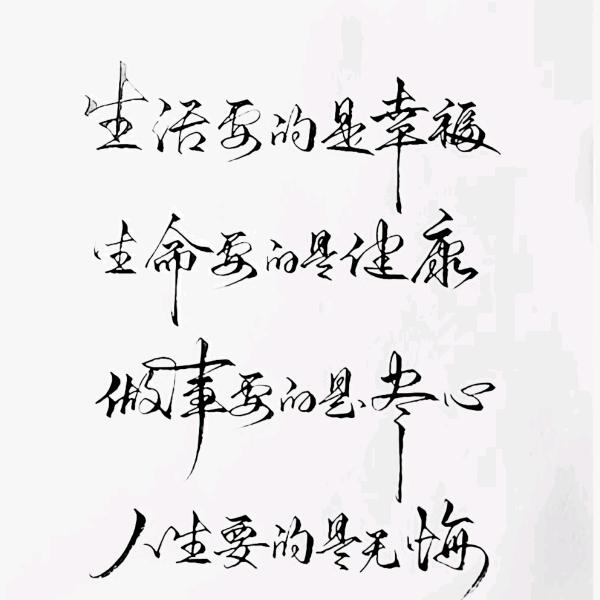 生活要的是幸福
生命要的是健康
做事要的是尽心
人生要的是无悔